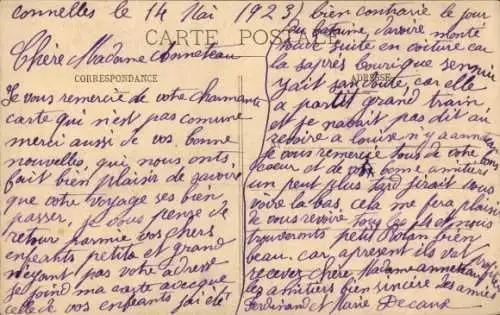 connelles le 14 Mai 1923
CARTE POSTALE
Chère Madame Anneteau
CORRESPONDANCE
Je vous remercie de votre charmante
carte qui n'est pas comune
merci aussi de vos bonne
nouvelles, qui nous ont
fait bien plaisir de savoire
que votre voyage ses bien
passer, je vous pense de
retour parmie vos chers
enfeants petits et grand
n'eyant pas votre adresse
Je joind ma carte avecque
celle de vos enfeants j'ai été
bien contrarié le jour
davoire monté
tout suite en voiture car
la saprés bourique sennui
yait sandoute, car elle
ADRESSE
a partit grand train,
et je nabait pas dit au
revoire a louise n'y a
je vous remercie tous de votre bon
coeur et de vos bonne amitiers
un peut plus tard sirait vous
voire la bas, cela me fera plaisir
de vous revoire tous les
trouverons petit bien
beau. car apresent ils vat
recevez chère Madame anneteau
les amitiers bien sincère des amie
Ferdinand et Marie Decaux